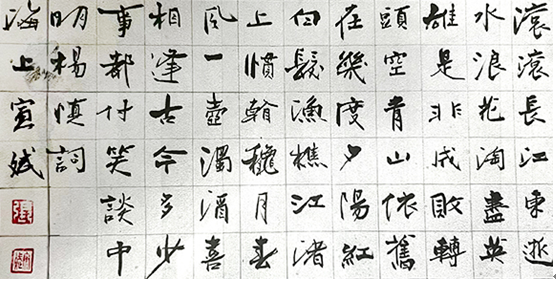 滾滾長江東逝
水浪花淘盡英
雄是非成敗轉
頭空青山依舊
在幾度夕陽紅
白髮漁樵江渚
上慣看穐月春
風一壺濁酒喜
相逢古今多少
事都付笑談中
明楊慎詞
海上宣斌